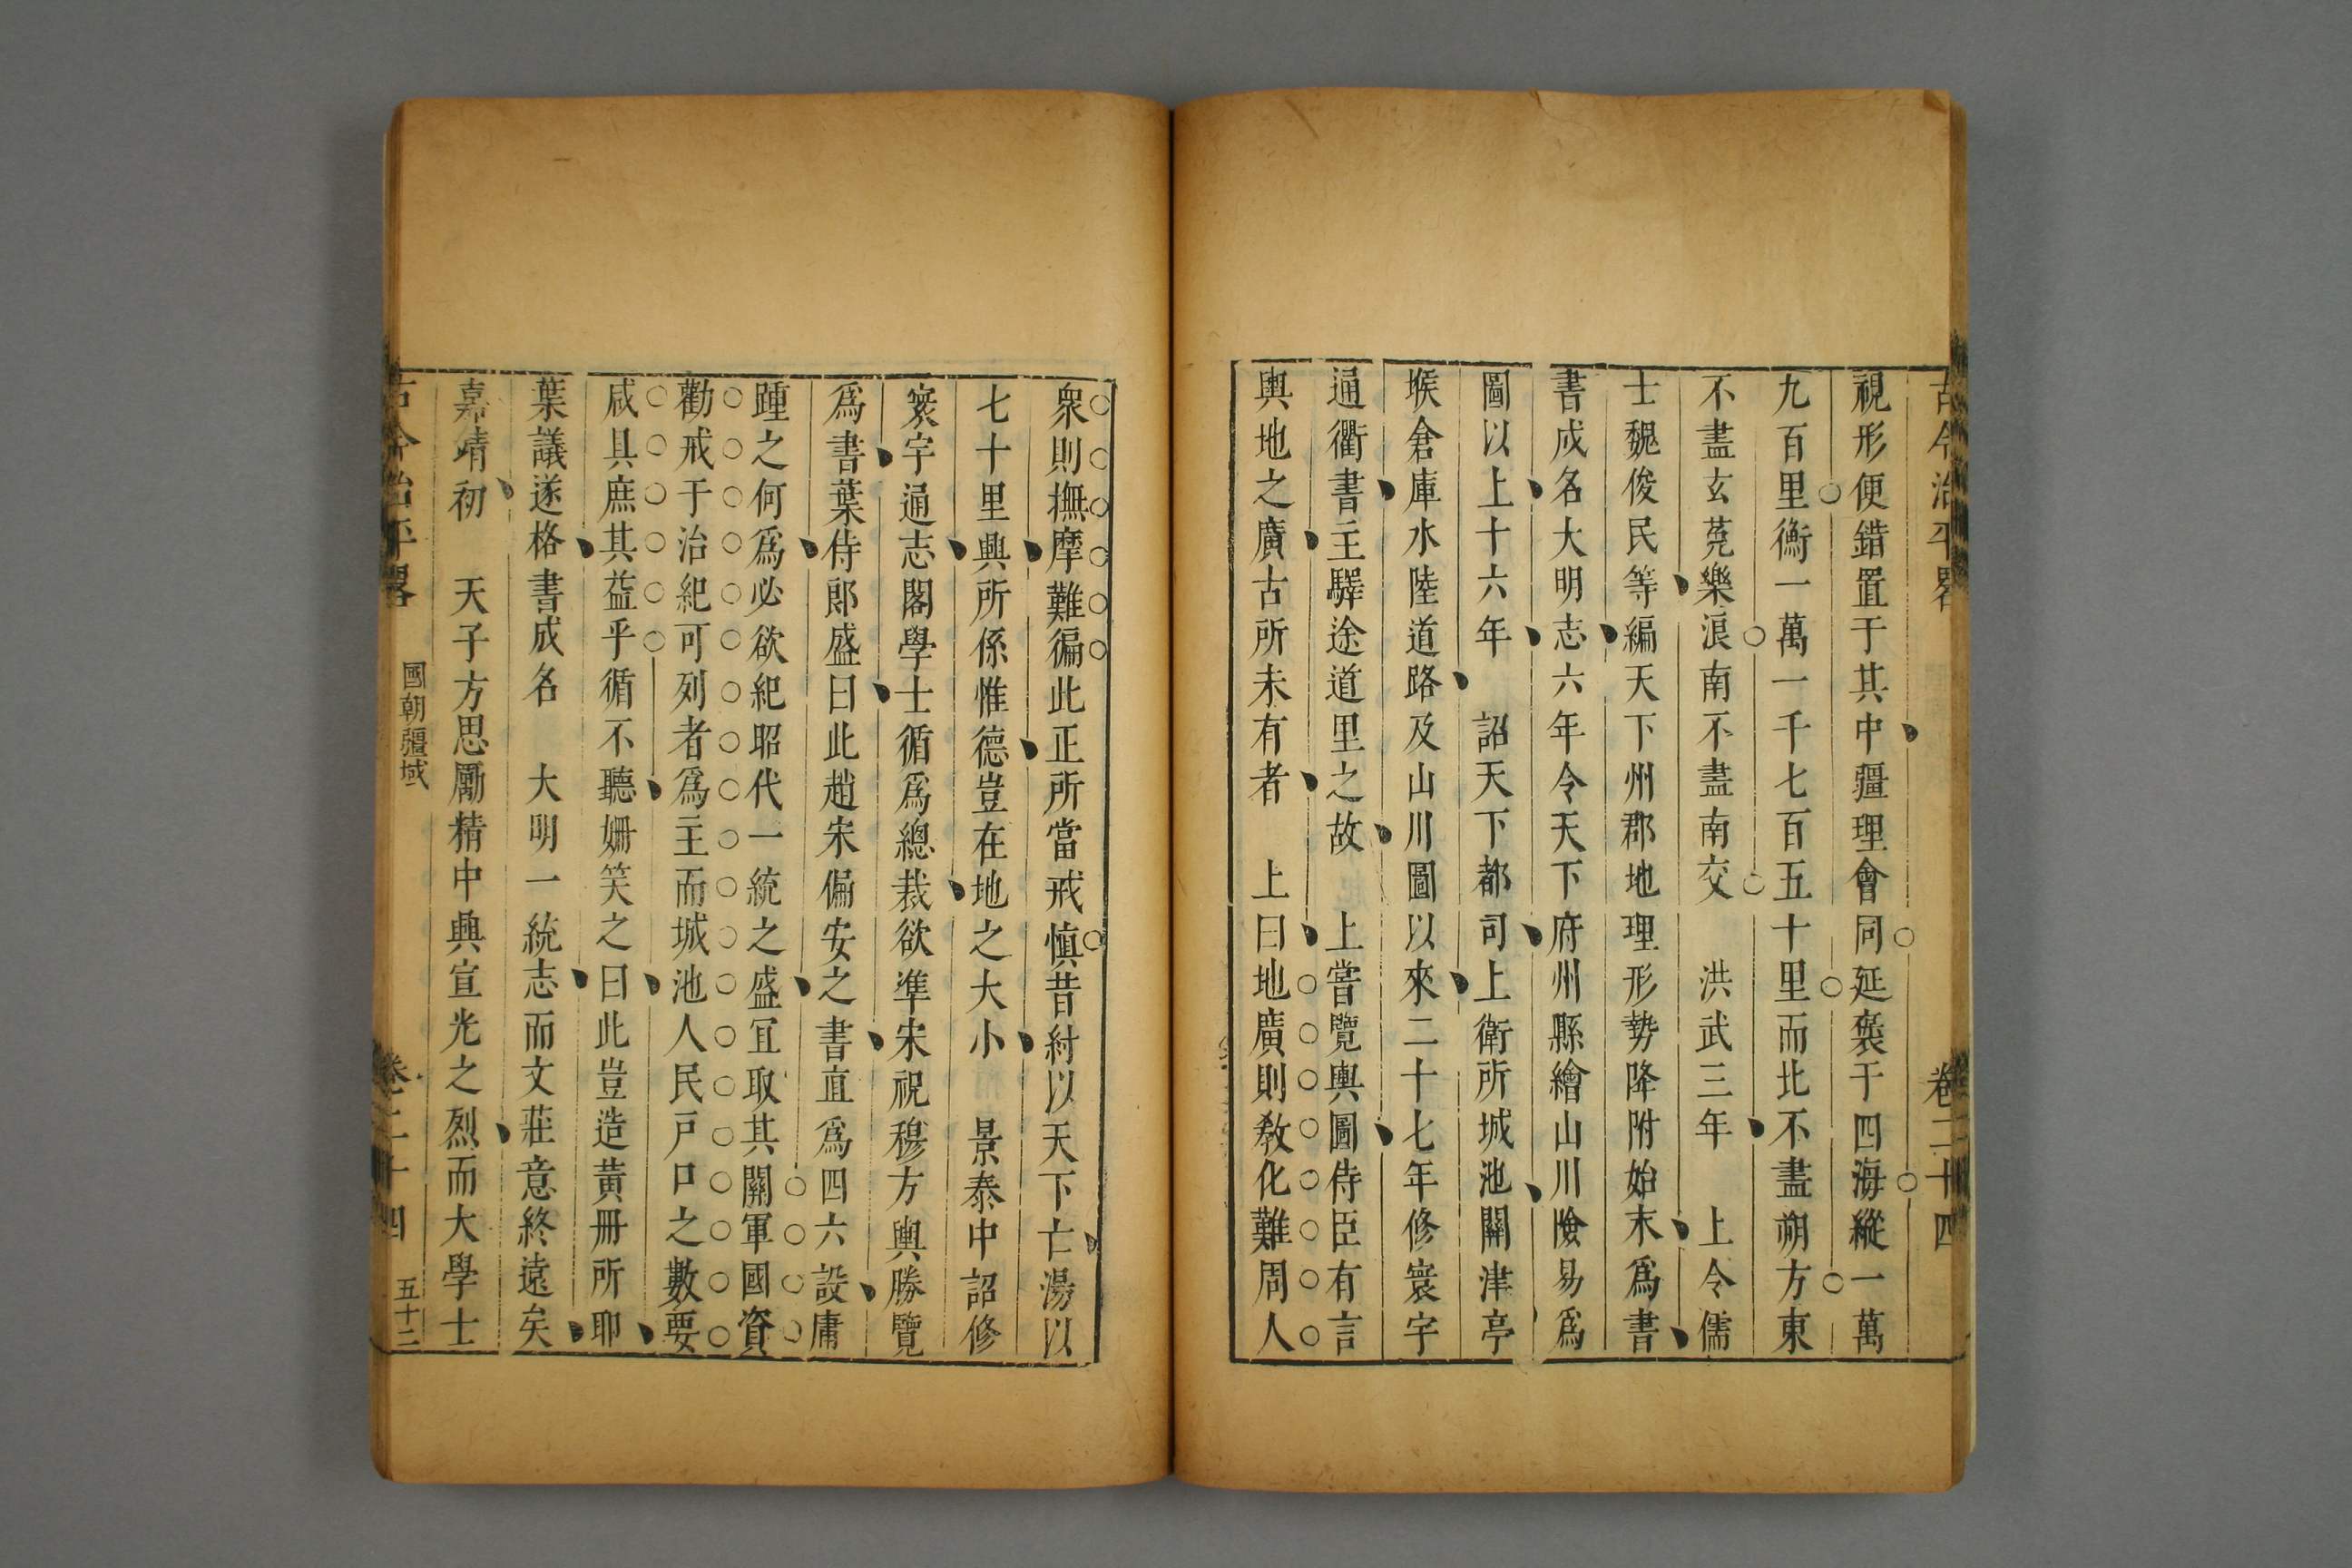 古今治平畧 卷二十四
視形便錯置于其中疆理會同延袤于四海縱一萬
九百里衡一萬一千七百五十里而北不盡朔方東
不盡玄菟樂浪南不盡南交 洪武三年 上令儒
士魏俊民等編天下州郡地理形勢降附始末爲書
書成名大明志六年令天下府州縣繪山川險易爲
圖以上十六年 詔天下都司上衛所城池關津亭
堠倉庫水陸道路及山川圖以來二十七年修寰宇
通衢書主驛途道里之故 上嘗覽輿圖侍臣有言
輿地之廣古所未有者 上曰地廣則教化難周人
衆則撫摩難徧此正所當戒慎昔紂以天下亡湯以
七十里興所係惟德豈在地之大小 景泰中詔修
寰宇通志閣學士循爲總裁欲準宋祝穆方輿勝覽
爲書葉侍郎盛曰此趙宋偏安之書直爲四六設庸
踵之何爲必欲紀昭代一統之盛冝取其關軍國資
勸戒于治紀可列者爲主而城池人民戸口之數要
咸具庶其益乎循不聽姍笑之曰此豈造黃冊所耶
葉議遂格書成名 大明一統志而文莊意終遠矣
嘉靖初 天子方思勵精中興宣光之烈而大學士
古今治平畧 國朝疆域 卷二十四 五十二